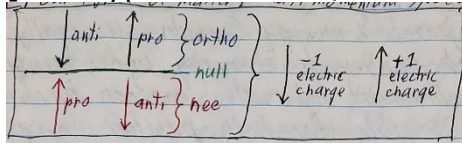 anti pro ortho
null
pro anti nee
-1 electric charge
+1 electric charge